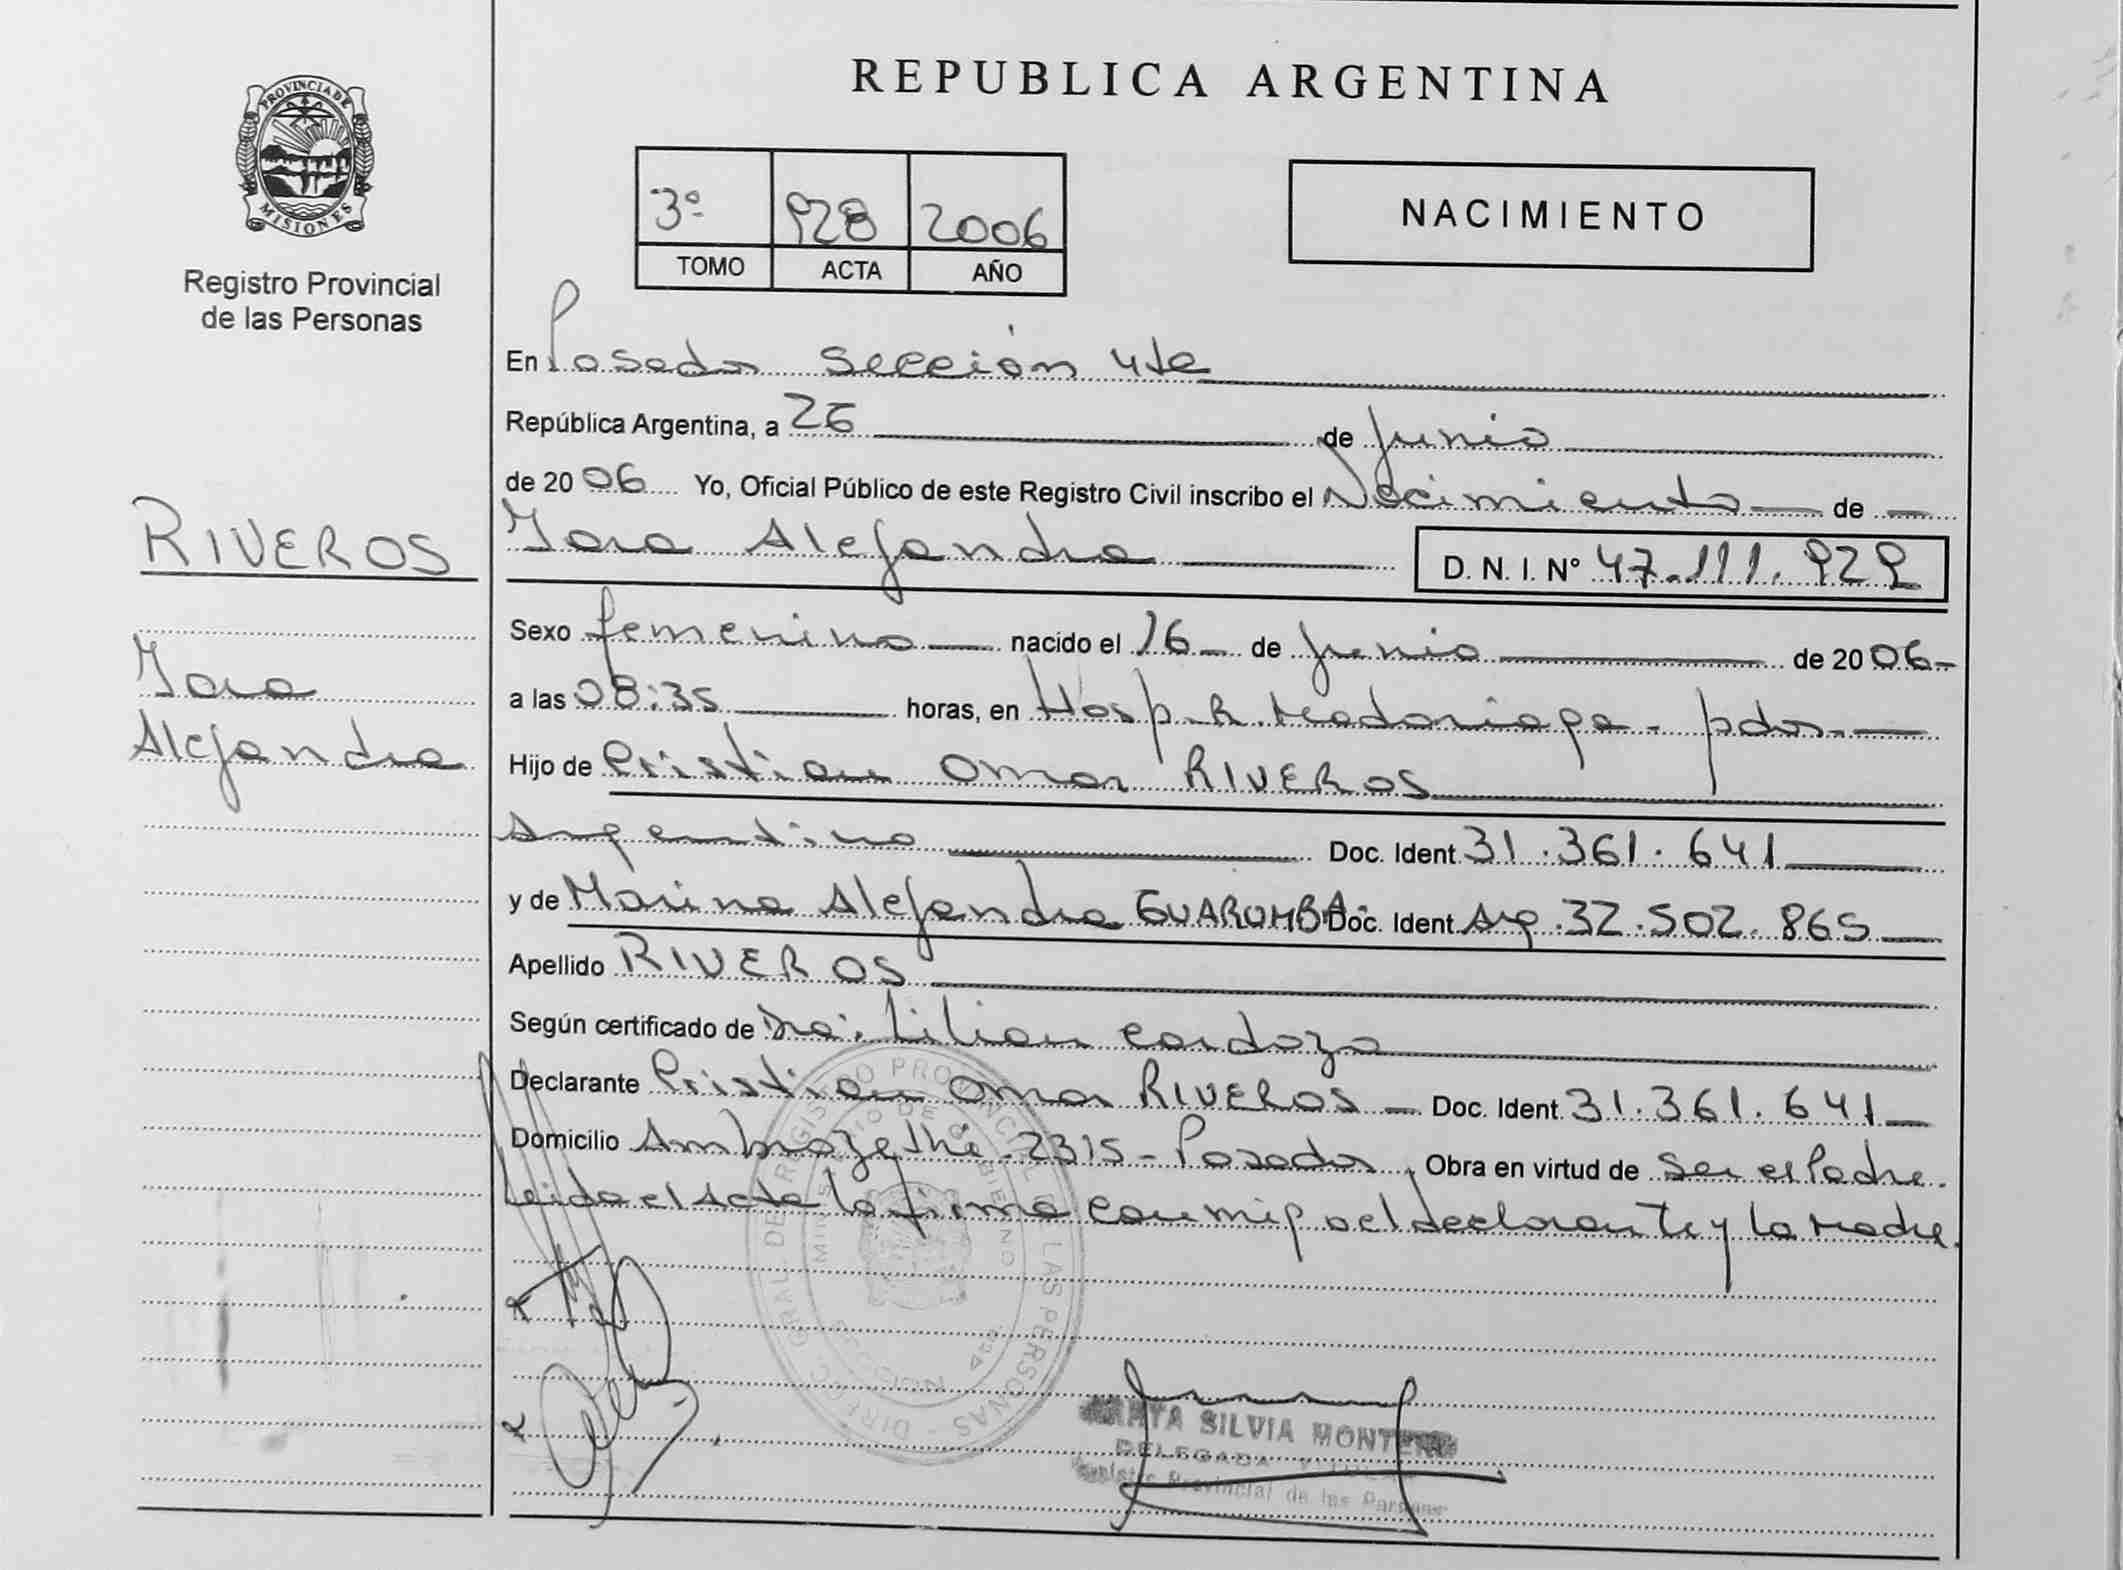 REPUBLICA ARGENTINA
PROVINCIA DE MISIONES
Registro Provincial
de las Personas
3º 928 2006
TOMO ACTA AÑO
NACIMIENTO
En Posadas Sección 4ta
República Argentina, a 26 de Junio
de 2006 Yo, Oficial Público de este Registro Civil inscribo el Nacimiento de
RIVEROS
Alejandra
Alejandra D. N. I. Nº 47.111.929
Sexo femenino nacido el 16 de Junio de 2006
a las 08:35 horas, en Hosp. R. Madariaga - pdas.
Hijo de Cristian Omar RIVEROS
Argentino Doc. Ident. 31.361.641
y de Marina Alejandra GUAROMBA Doc. Ident. Arg. 32.502.865
Apellido RIVEROS
Según certificado de Dra. Lilian Cardozo
Declarante Cristian Omar RIVEROS Doc. Ident. 31.361.641
Domicilio 2315 - Posadas, Obra en virtud de Ser el Padre.
Leida el Acta la firma conmigo el declarante y la Madre.
DIRECC. GRAL. DE REGISTRO PROVINCIAL DE LAS PERSONAS
MINISTERIO DE GOBIERNO
SILVIA MONTERO
DELEGADA
Registro Provincial de las Personas